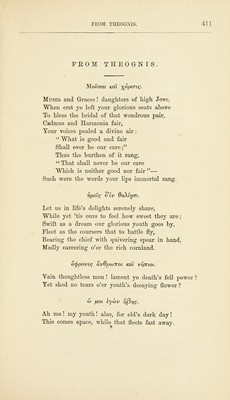 FROM THEOGNIS. 411
FROM THEOGNIS.
Μοῦσαι καὶ χάριτες.
MUSES and Graces! daughters of high Jove,
When erst ye left your glorious seats above
To bless the bridal of that wondrous pair,
Cadmus and Harmonia fair,
Your voices pealed a divine air:
"What is good and fair
Shall ever be our care;"
Thus the burthen of it rang,
"That shall never be our care
Which is neither good nor fair"—
Such were the words your lips immortal sang.
ἡμεῖς δ'ἐν θαλίῃσι.
Let us in life's delights serenely share,
While yet 'tis ours to feel how sweet they are;
Swift as a dream our glorious youth goes by,
Fleet as the coursers that to battle fly,
Bearing the chief with quivering spear in hand,
Madly careering o'er the rich cornland.
ἄφρονες ἄνθρωποι καὶ νήπιοι.
Vain thoughtless men! lament ye death's fell power?
Yet shed no tears o'er youth's decaying flower?
ὤ μοι ἐγὼν ἥβης.
Ah me! my youth! alas, for eld's dark day!
This comes apace, while that fleets fast away.